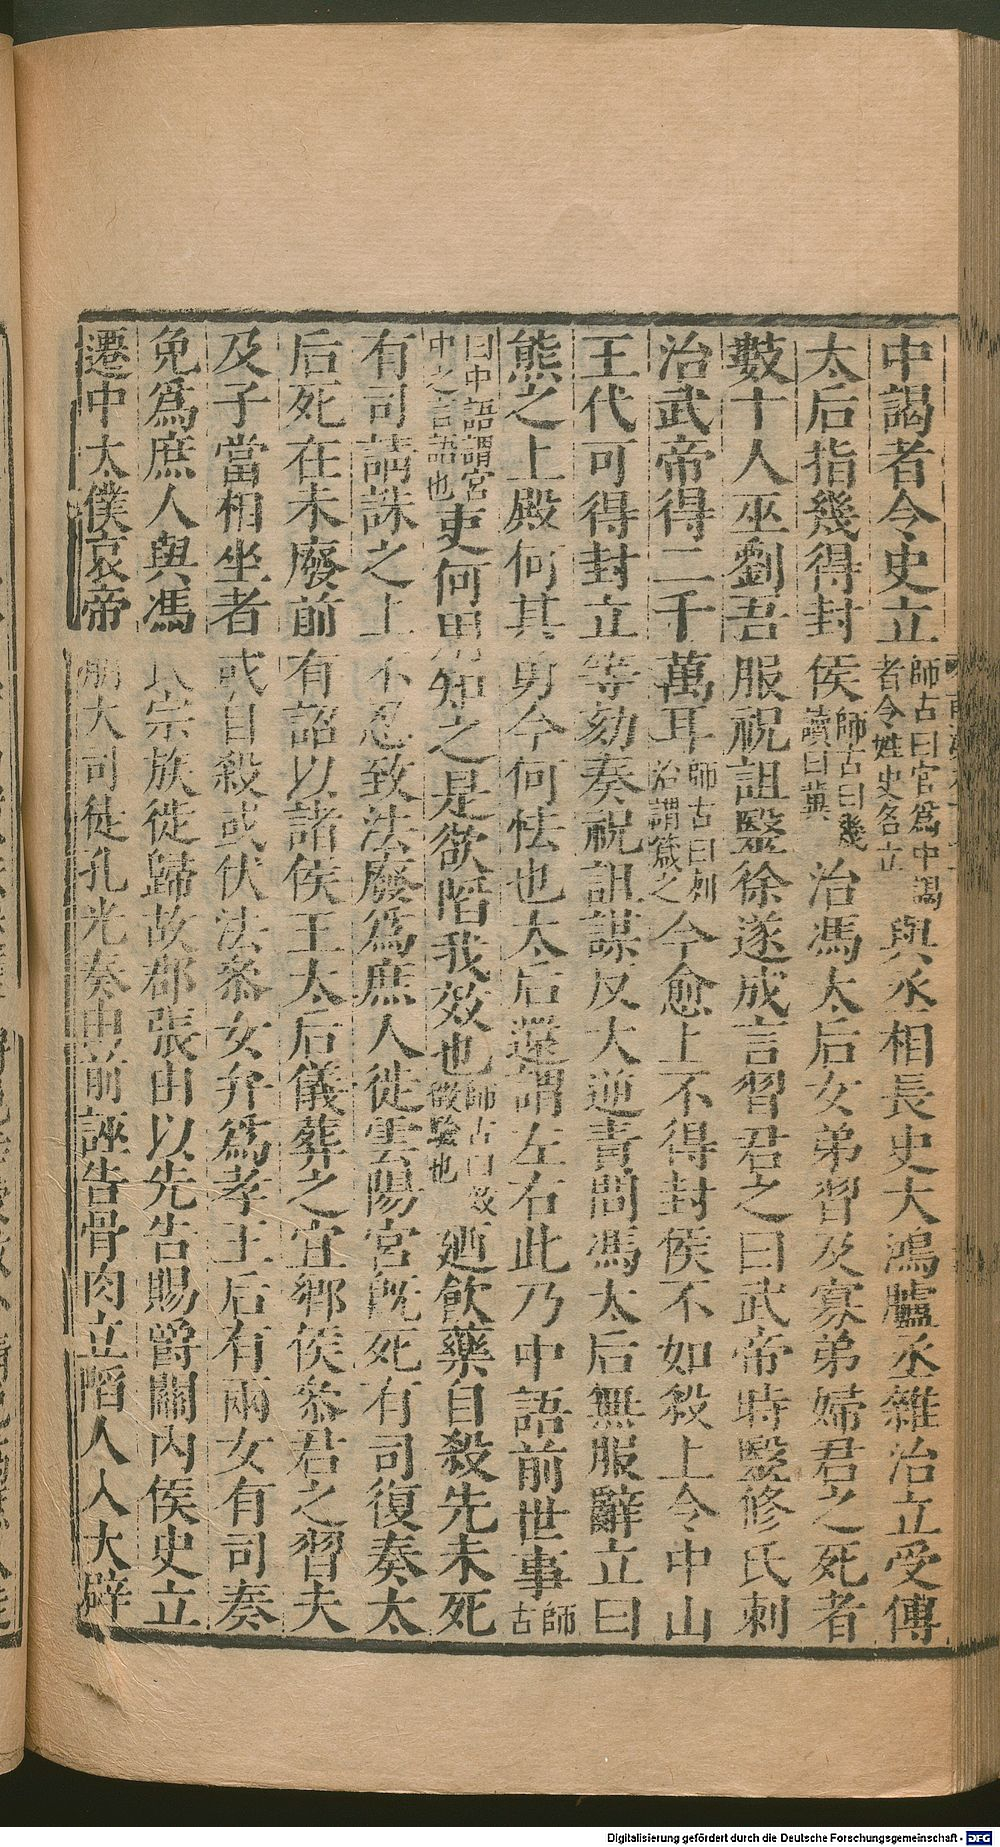 中謁者令史立師古曰官爲中謁者令姓史名立與丞相長史大鴻臚丞雜治立受傅
太后指幾得封侯師古曰幾讀曰冀治馮太后女弟習及寡弟婦君之死者
數十人巫劉吾服祝詛毉徐遂成言習君之曰武帝時毉修氏刺
治武帝得二千萬耳師古曰刺治謂箴之今愈上不得封侯不如殺上令中山
王代可得封立等劾奏祝詛謀反大逆責問馮太后無服辭立曰
熊之上殿何其勇今何怯也太后還謂左右此乃中語前世事師古
曰中語謂宮中之言語也吏何用知之是欲陷我效也師古曰效徵驗也廼飲藥自殺先未死
有司請誅之上不忍致法廢爲庶人徙雲陽宮旣死有司復奏太
后死在未廢前有詔以諸侯王太后儀葬之宜鄉侯叅君之習夫
及子當相坐者或自殺或伏法叅女弁爲孝王后有兩女有司奏
免爲庶人與馮氏宗族徙歸故郡張由以先告賜爵關內侯史立
遷中太僕哀帝崩大司徒孔光奏由前誣告骨肉立陷人入大辟
Digitalisierung gefördert durch die Deutsche Forschungsgemeinschaft - DFG